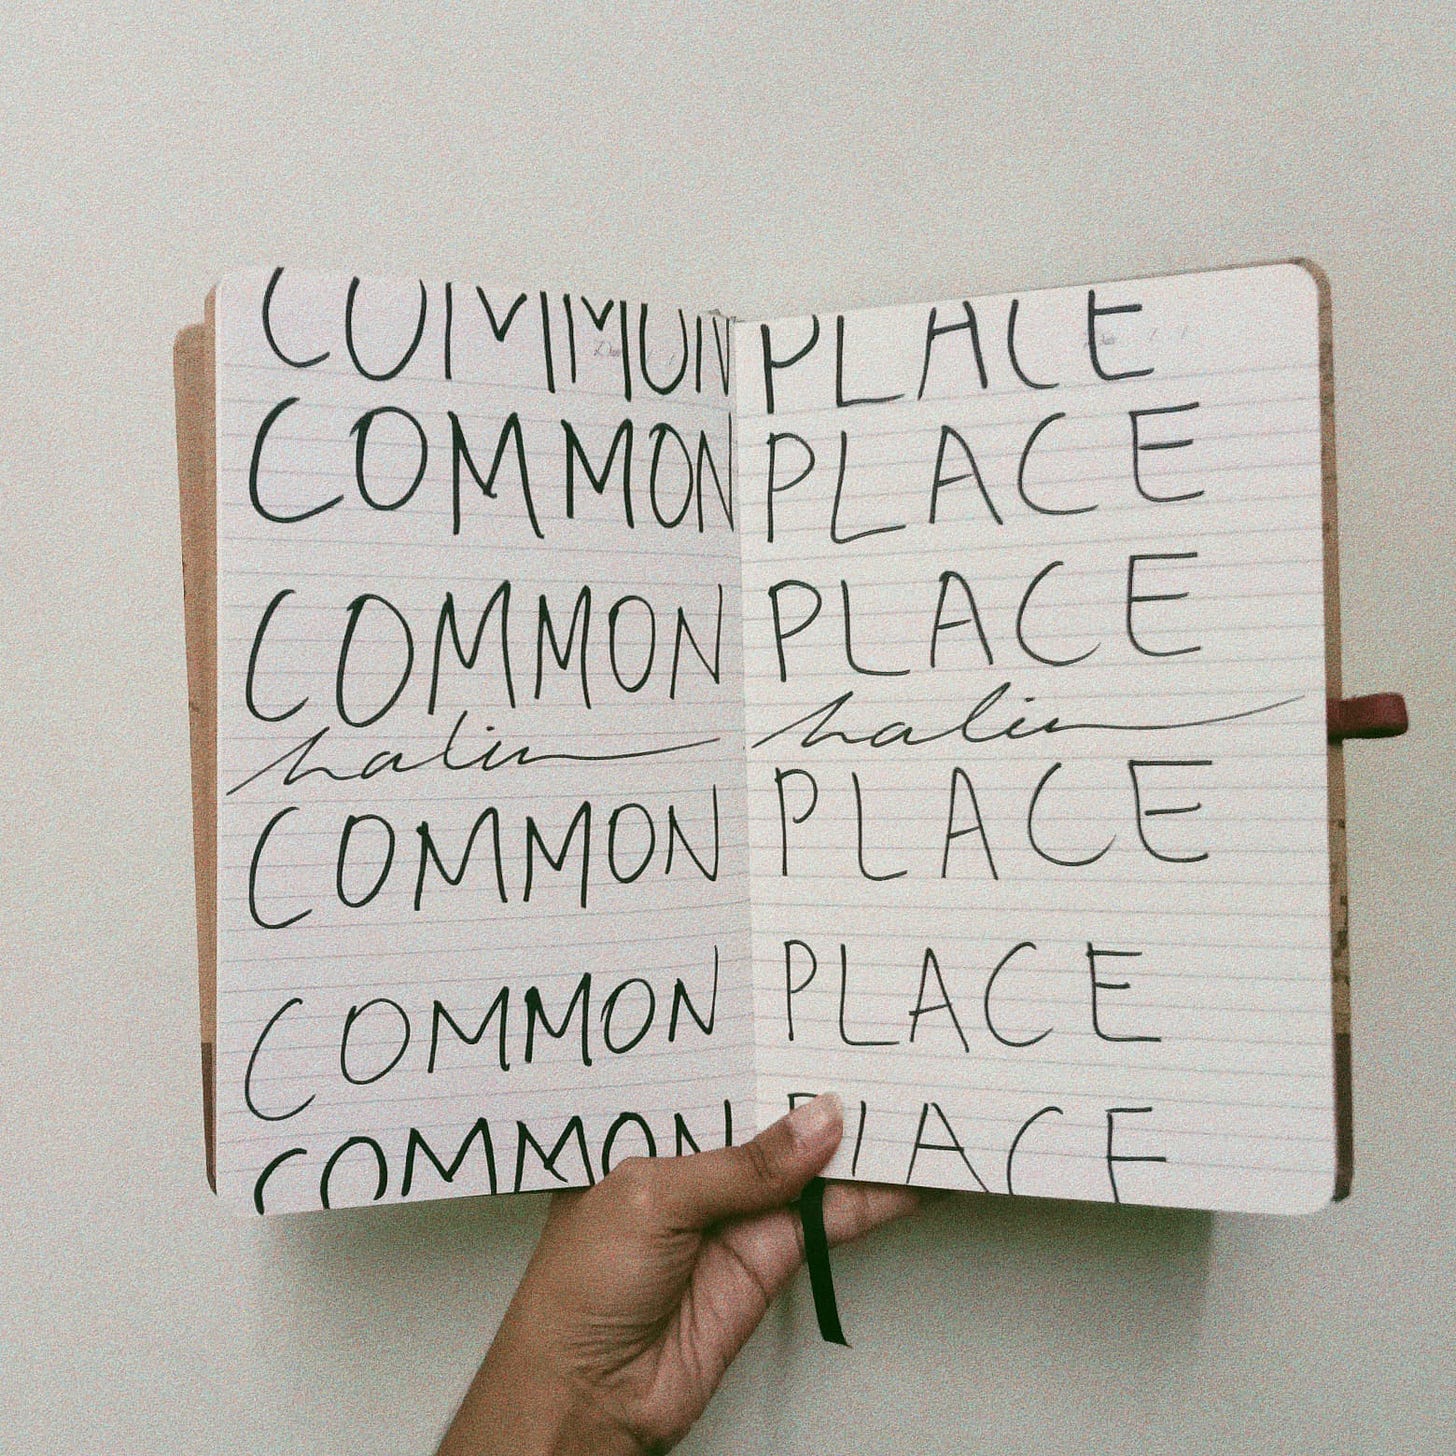 COMMON PLACE
COMMON PLACE
COMMON PLACE
halim halim
COMMON PLACE
COMMON PLACE
COMMON PLACE